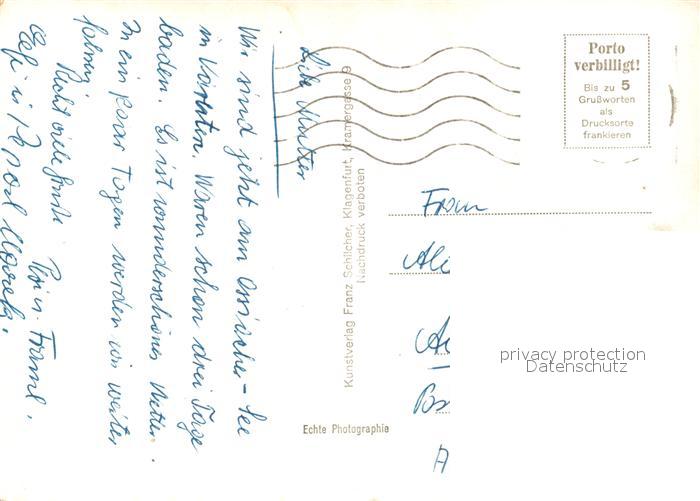 Liebe Mutter
Wir sind jetzt am Ossiacher-See
in Kärnten. Waren schon drei Tage
baden. Es ist wunderschönes Wetter.
In ein paar Tagen werden wir weiter
fahren.
Recht viele
Kunstverlag Franz Schilcher, Klagenfurt, Kramergasse 9
Nachdruck verboten
Echte Photographie
Porto
verbilligt!
Bis zu 5
Grußworten
als
Drucksorte
frankieren
Frau
privacy protection
Datenschutz